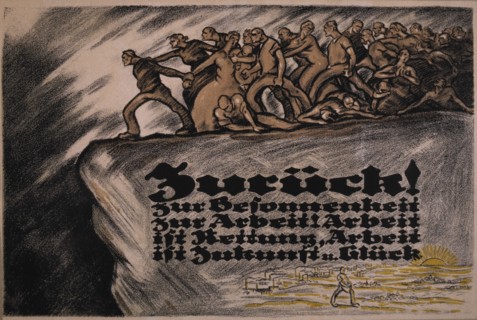 Zurück!
Zur Besonnenheit
Zur Arbeit! Arbeit
ist Rettung, Arbeit
ist Zukunft u. Glück